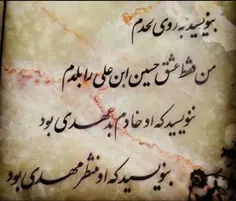 بنویسید به روی لحدم
من فقط عشق حسین ابن علی را بلدم
ننویسید که او خادم بد عهدی بود
بنویسید که او منتظر مهدی بود